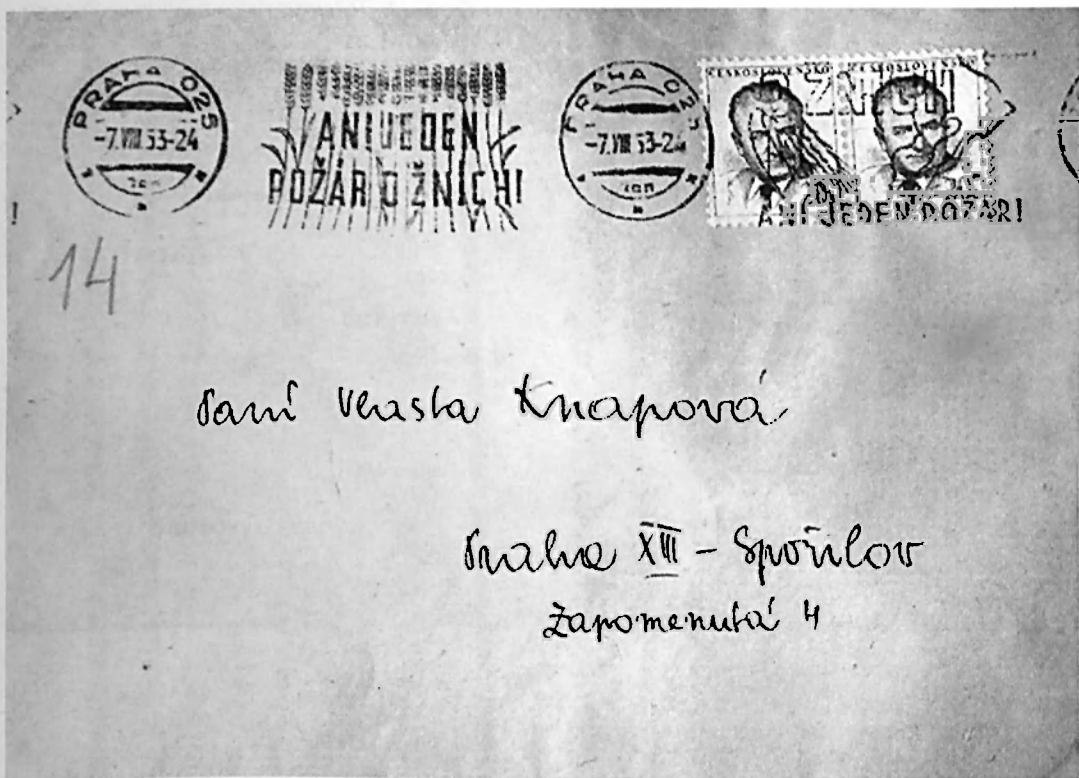 PRAHA 025
-7.VIII.53-24
ANI JEDEN
POŽÁR O ŽNÍCH!
PRAHA 025
-7.VIII.53-24
ČESKOSLOVENSKO
ČESKOSLOVENSKO
ŽNÍCH!
ANI JEDEN POŽÁR!
14
Paní Vlasta Knapová
Praha XIII - Spořilov
Zapomenutá 4